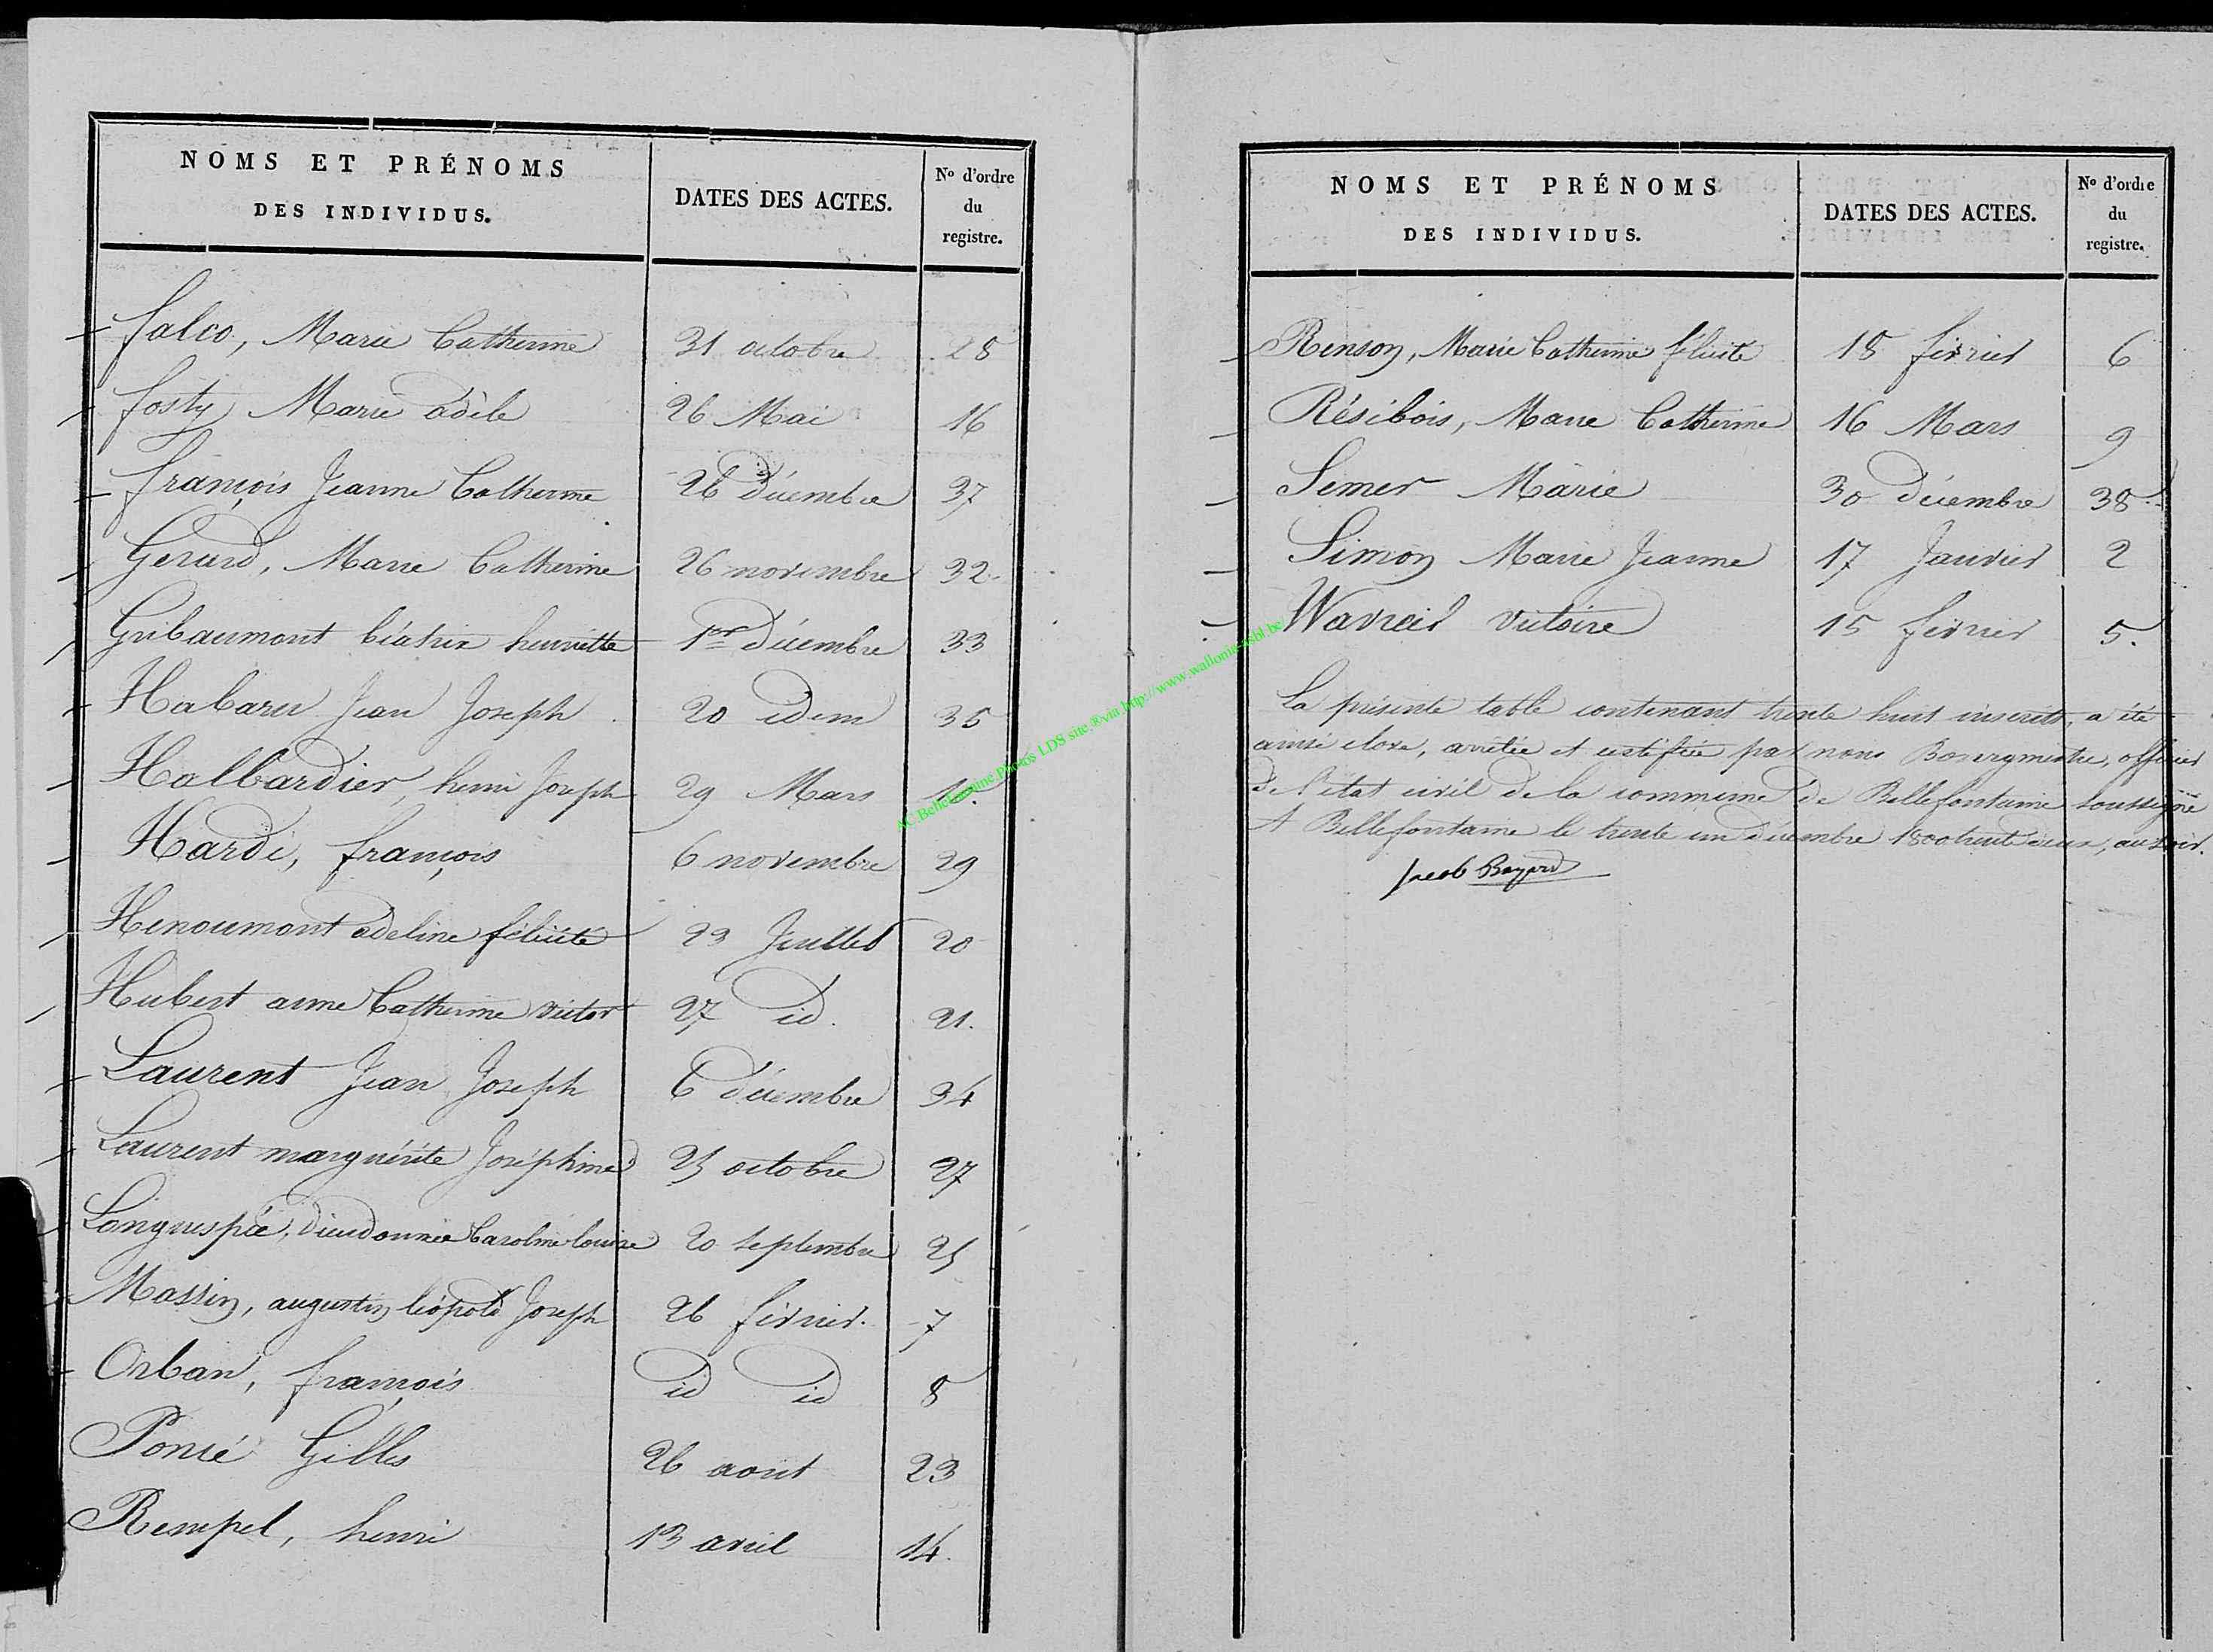 NOMS ET PRÉNOMS
DES INDIVIDUS.
DATES DES ACTES.
No d'ordre
du
registre.
Falco, Marie Catherine 31 octobre 28
Fosty Marie adèle 26 Mai 16
François Jeanne Catherine 26 décembre 37
Gerard, Marie Catherine 26 novembre 32.
Gribaumont béatrix henriette 1er décembre 33
Habaru Jean Joseph 20 idem 35
Halbardier, henri Joseph 29 Mars
Hardi, françois 6 novembre 29
Henoumont adeline félicité 23 Juillet 20
Hubert anne Catherine victor 27 id. 21.
Laurent Jean Joseph 6 décembre 34
Laurent marguérite Joséphine 25 octobre 27
Longuespée, Dieudonnée Caroline louise 20 septembre 25
Massin, augustin léopold Joseph 26 février. 7
Orban, françois id id 8
Poncé Gilles 26 aout 23
Rempel, henri 13 avril 14.
NOMS ET PRÉNOMS
DES INDIVIDUS.
DATES DES ACTES.
No d'ordre
du
registre.
Renson, Marie Catherine félicité 18 février 6
Résibois, Marie Catherine 16 Mars 9
Semer Marie 30 décembre 38.
Simon Marie Jeanne 17 Janvier 2
Wavreil victoire 15 février 5.
La présente table contenant trente huit inscrits, a été
ainsi close, arrêtée et certifiée par nous Bourgmestre, officier
de l'état civil de la commune de Bellefontaine soussigné
A Bellefontaine le trente un décembre 1800 trente deux, au soir.
Jacob Bayard
AC.Bellefontaine.Photos LDS site.®vin http://www.wallonia-asbl.be/